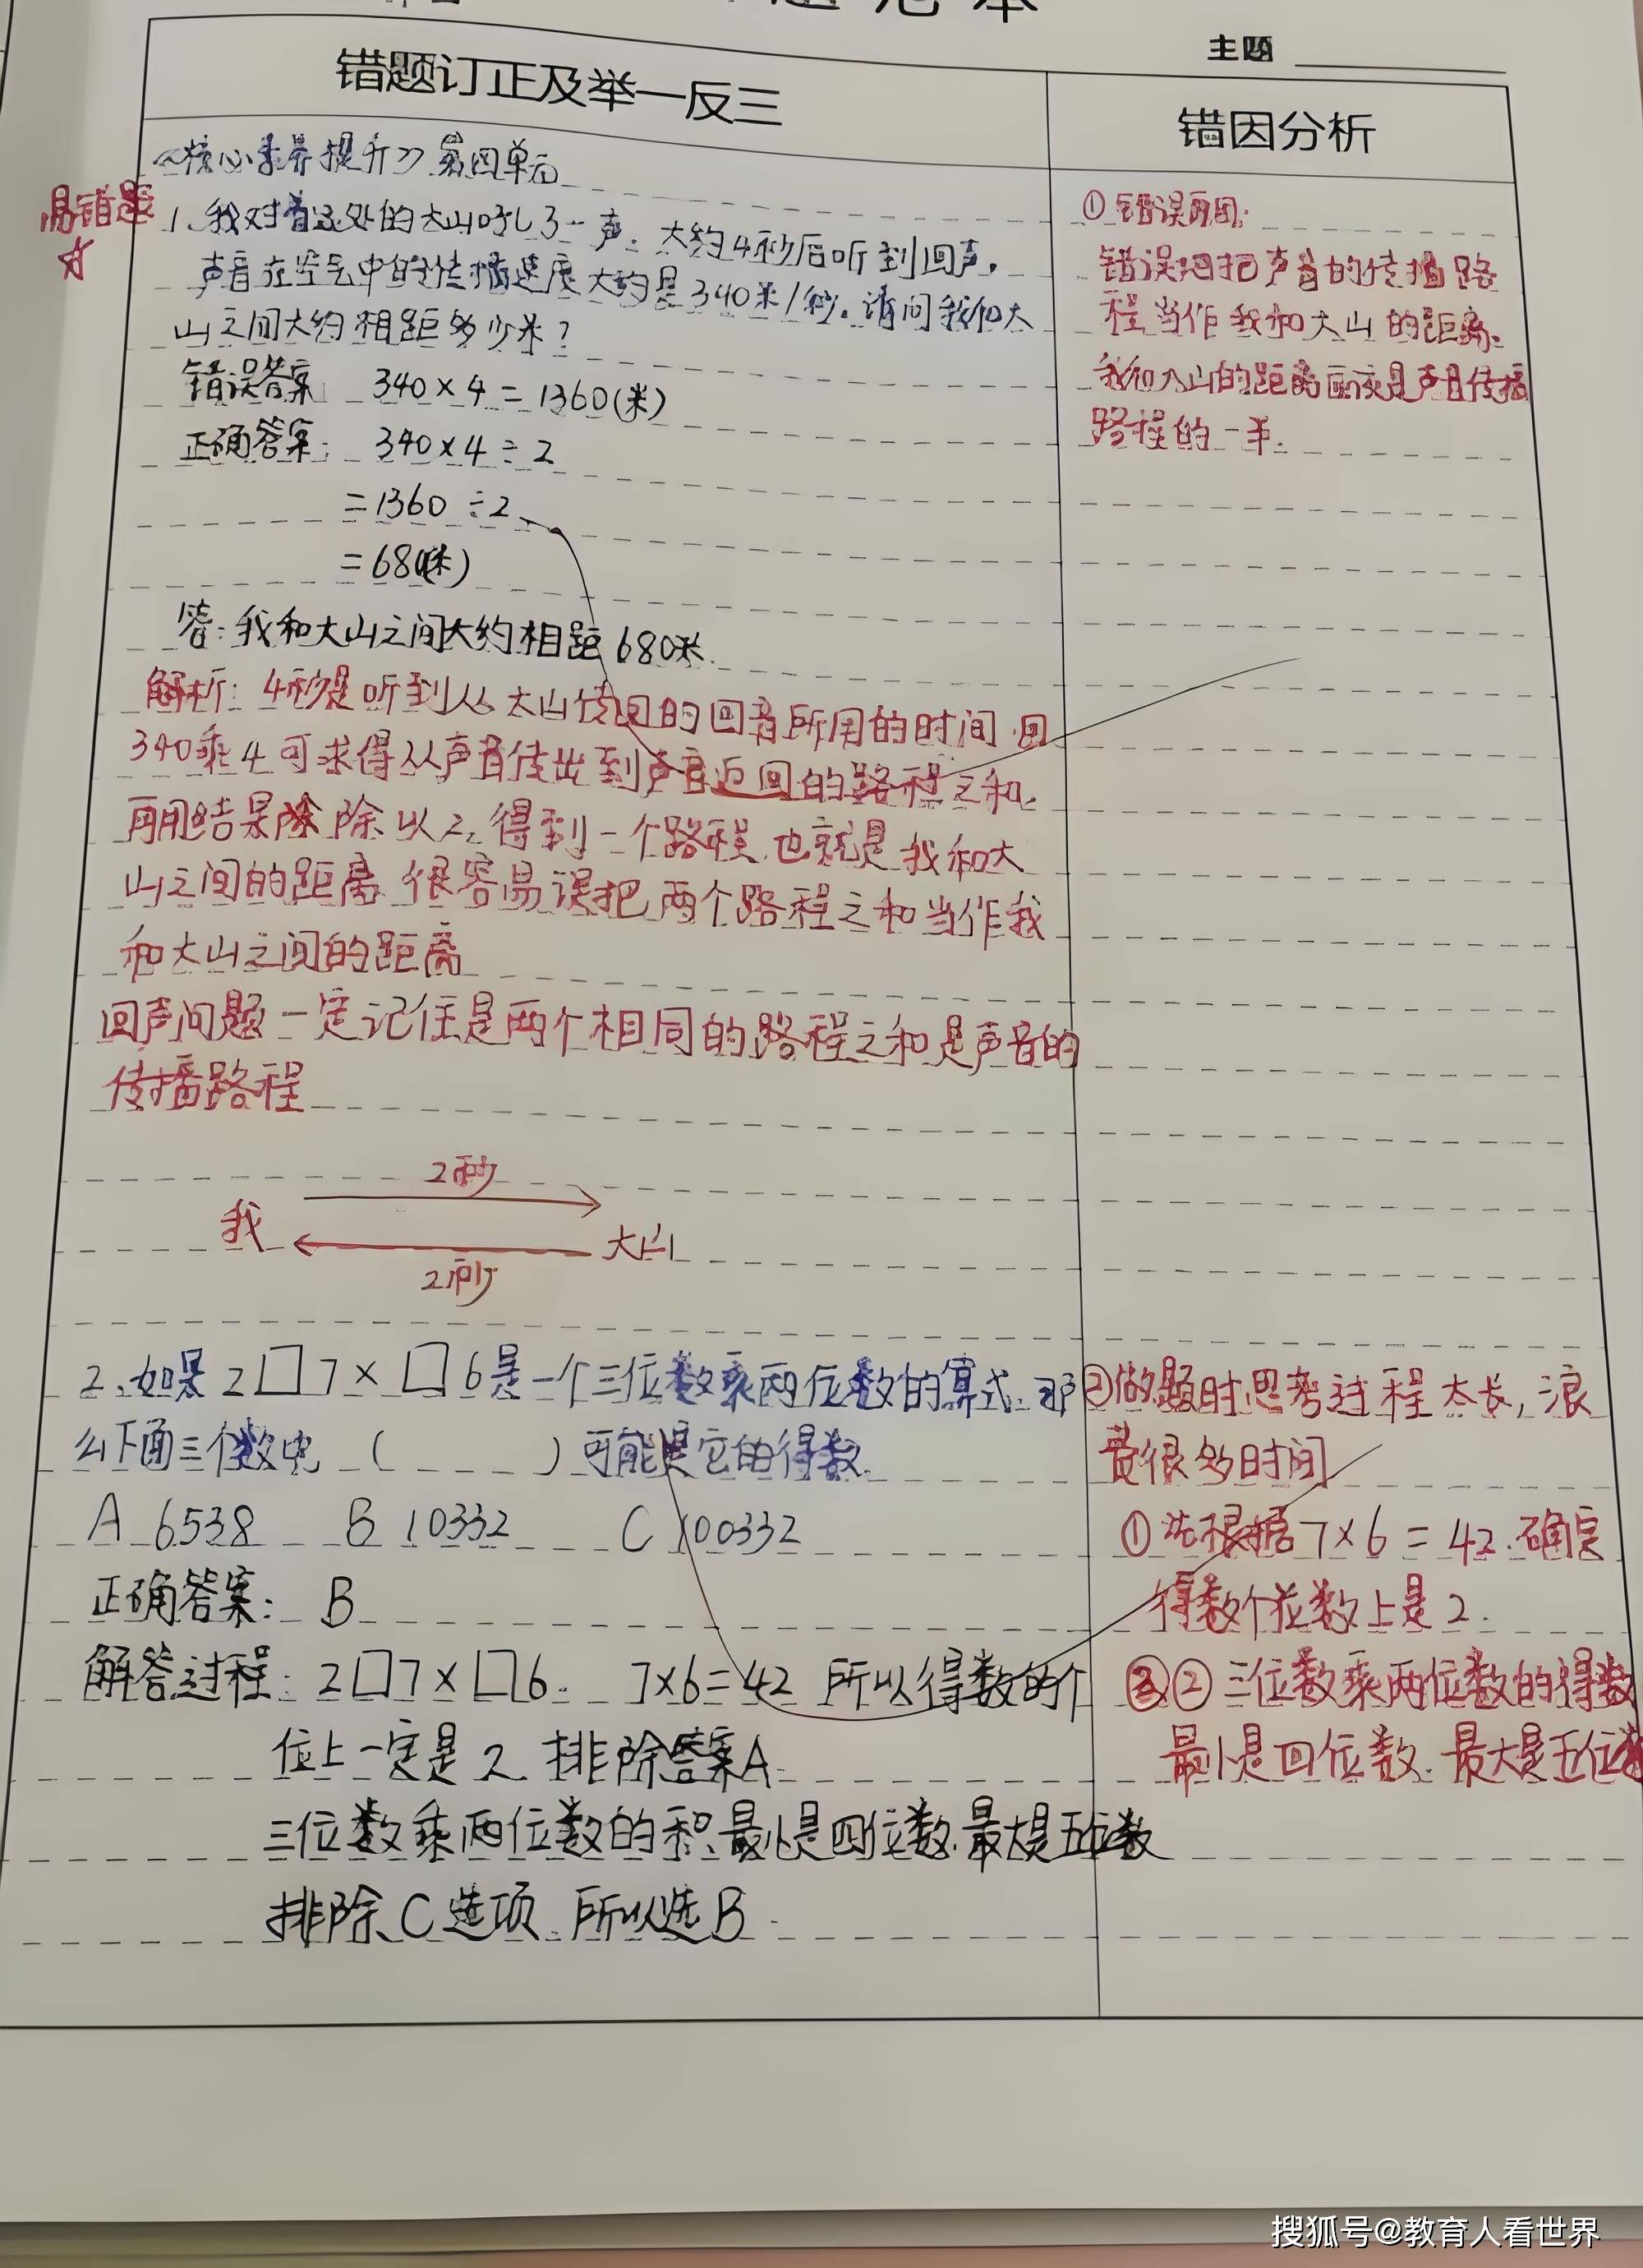 主题
错题订正及举一反三
错因分析
《核心素养提升》第四单元
易错题
☆
1、我对着远处的大山吼了一声。大约4秒后听到回声,
声音在空气中的传播速度大约是340米/秒。请问我和大
山之间大约相距多少米?
错误答案 340×4=1360(米)
正确答案: 340×4÷2
=1360÷2
=680(米)
答:我和大山之间大约相距680米.
解析: 4秒是听到从大山传回的回音所用的时间.因
340乘4可求得从声音传出到声音返回的路程之和,
再用结果除以2,得到一个路程,也就是我和大
山之间的距离 很容易误把两个路程之和当作我
和大山之间的距离
回声问题一定记住是两个相同的路程之和是声音的
传播路程
2秒
我
大山
2秒
2、如果2□7×□6是一个三位数乘两位数的算式.那
么下面三个数中 ( ) 可能是它的得数.
A 6538 B 10332 C 100332
正确答案: B
解答过程: 2□7×□6. 7×6=42 所以得数的个
位上一定是2 排除答案A.
三位数乘两位数的积.最小是四位数.最大是五位数
排除C选项.所以选B.
①错误原因:
错误地把声音的传播路
程当作我和大山的距离.
我和大山的距离应该是声音传播
路程的一半.
②做题时思考过程太长,浪
费很多时间
①先根据7×6=42.确定
得数个位数上是2.
②三位数乘两位数的得数
最小是四位数.最大是五位数
搜狐号@教育人看世界